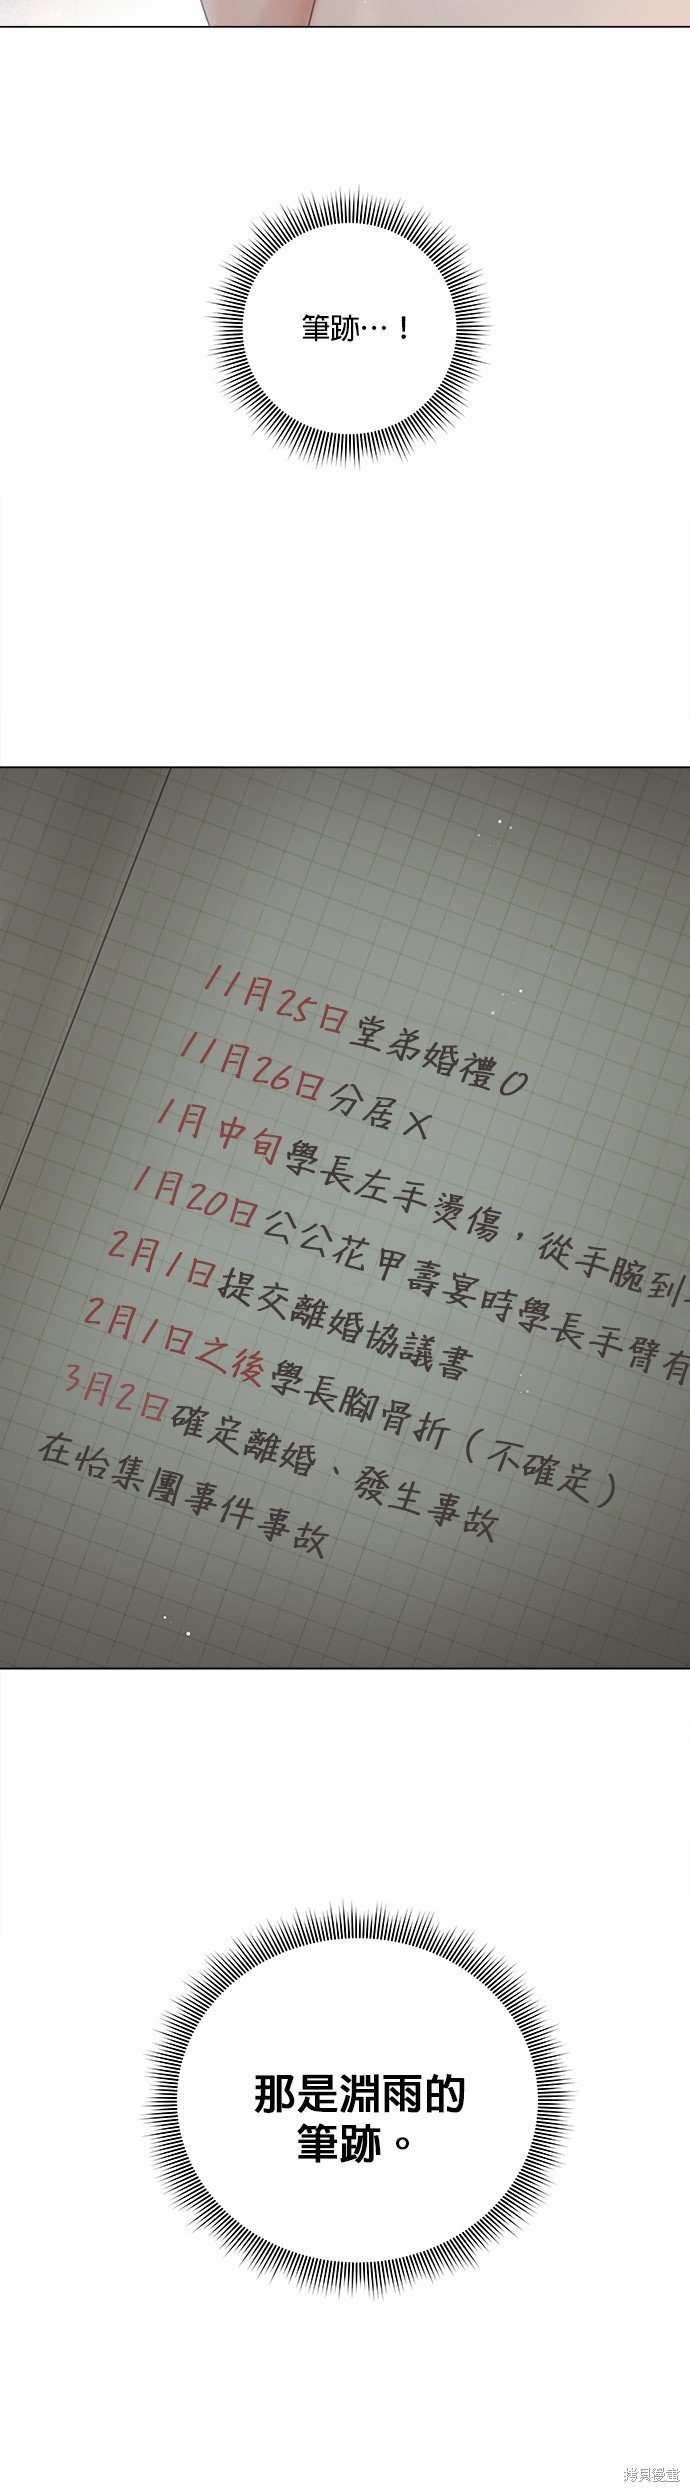 筆跡…！
11月25日堂弟婚禮O
11月26日分居X
1月中旬學長左手燙傷，從手腕到
1月20日公公花甲壽宴時學長手臂有
2月1日提交離婚協議書
2月1日之後學長腳骨折（不確定）
3月2日確定離婚、發生事故
在怡集團事件事故
那是淵雨的
筆跡。
拷貝漫畫